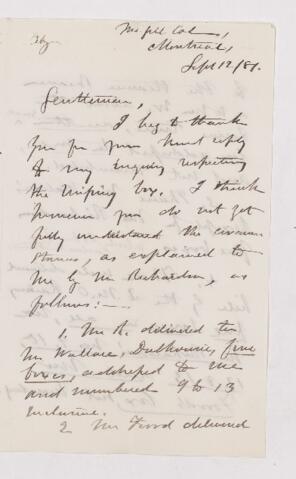 McGill Col.,
Montreal,
Sept 12/81.
Gentlemen,
I beg to thank
you for your reply
to my inquiry respecting
the missing box. I think
however you do not yet
fully understand the circum
stances, as explained to
me by Mr Richardson, as
follows:—
1. Mr R. delivered to
Mr Wallace, Dalhousie, five
boxes, addressed to me
and numbered 9 to 13
inclusive.
2 Mr Wood delivered